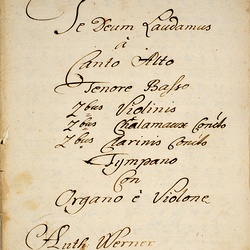 Te Deum Laudamus
à
Canto Alto
Tenore Basso
2bus Violinis
2bus Chalamaux Conc:to
2bus Clarinis Conc:to
Tympano
Con
Organo è Violone
Auth: Werner